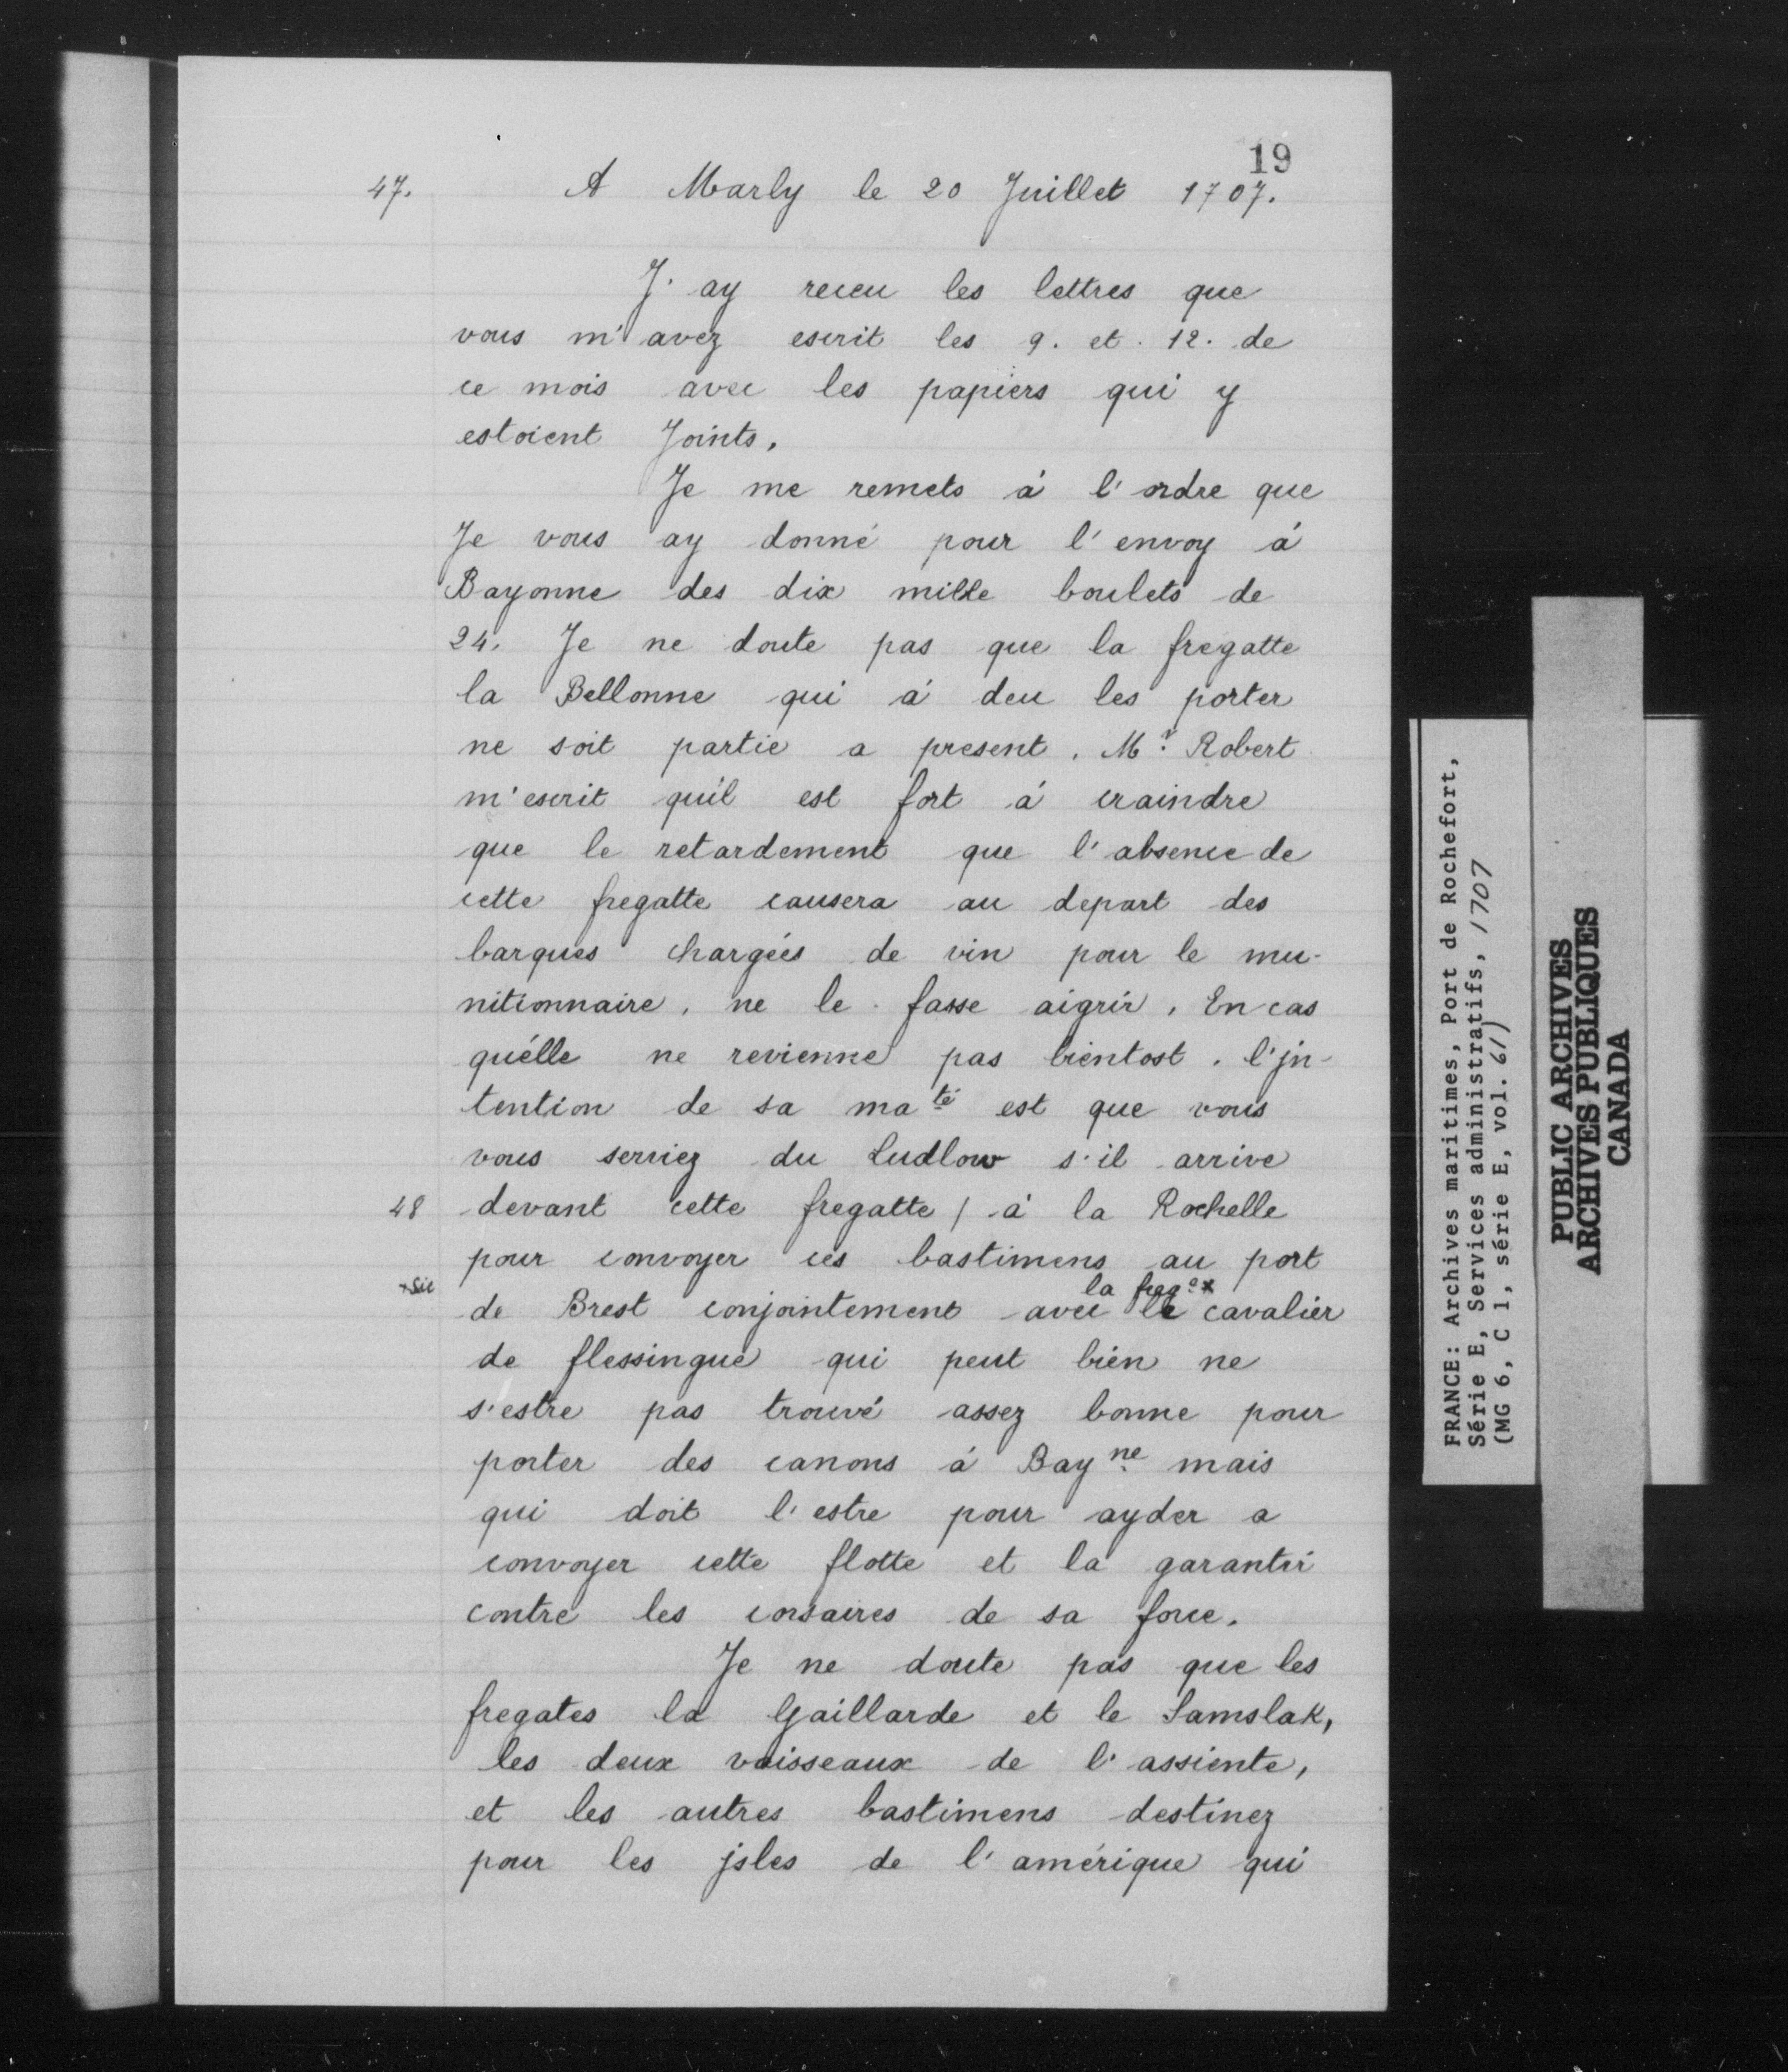 19
47. A Marly le 20 Juillet 1707.
J'ay receu les lettres que
vous m'avez escrit les 9. et. 12. de
ce mois avec les papiers qui y
estoient Joints.
Je me remets à l'ordre que
Je vous ay donné pour l'envoy à
Bayonne des dix mille boulets de
24. Je ne doute pas que la fregatte
la Bellonne qui à deu les porter
ne soit partie a present. Mr. Robert
m'escrit qu'il est fort à craindre
que le retardement que l'absence de
cette fregatte causera au depart des
barques chargées de vin pour le mu-
nitionnaire, ne le fasse aigrir. En cas
qu'elle ne revienne pas bientost. l'jn-
tention de sa maté est que vous
vous serviez du Ludlow s'il arrive
48 devant cette fregatte / à la Rochelle
pour convoyer ces bastimens au port
la freg.e x
x sic de Brest conjointement avec le cavalier
de flessingue qui peut bien ne
s'estre pas trouvé assez bonne pour
porter des canons à Bayne mais
qui doit l'estre pour ayder a
convoyer cette flotte et la garantir
contre les corsaires de sa force.
Je ne doute pas que les
fregates la Gaillarde et le Samslak,
les deux vaisseaux de l'assiente,
et les autres bastimens destinez
pour les jsles de l'amérique qui
FRANCE: Archives maritimes, Port de Rochefort,
Série E, Services administratifs, 1707
(MG 6, C 1, série E, vol. 61)
PUBLIC ARCHIVES
ARCHIVES PUBLIQUES
CANADA